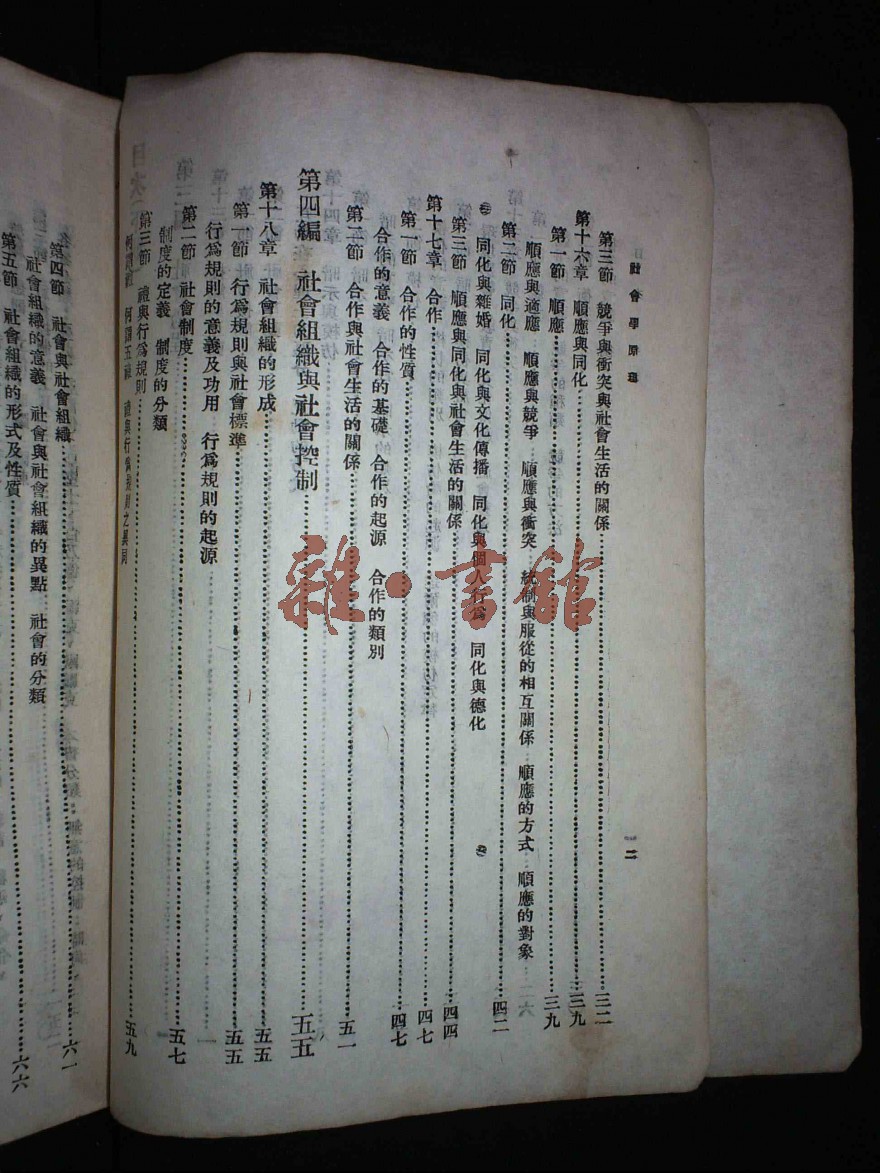 社會學原理
二
第三節 競爭與衝突與社會生活的關係……三二
第十六章 順應與同化……三九
第一節 順應……三九
順應與適應 順應與競爭 順應與衝突 統制與服從的相互關係 順應的方式 順應的對象
第二節 同化……四二
同化與雜婚 同化與文化傳播 同化與個人行爲 同化與德化
第三節 順應與同化與社會生活的關係……四四
第十七章 合作……四七
第一節 合作的性質……四七
合作的意義 合作的基礎 合作的起源 合作的類別
第二節 合作與社會生活的關係……五一
第四編 社會組織與社會控制……五五
第十八章 社會組織的形成……五五
第一節 行爲規則與社會標準……五五
行爲規則的意義及功用 行爲規則的起源
第二節 社會制度……五七
制度的定義 制度的分類
第三節 禮與行爲規則……五九
何謂五禮 禮與行爲規則之異同
第四節 社會與社會組織……六一
社會組織的意義 社會與社會組織的異點 社會的分類
第五節 社會組織的形式及性質……六六
雜·書館